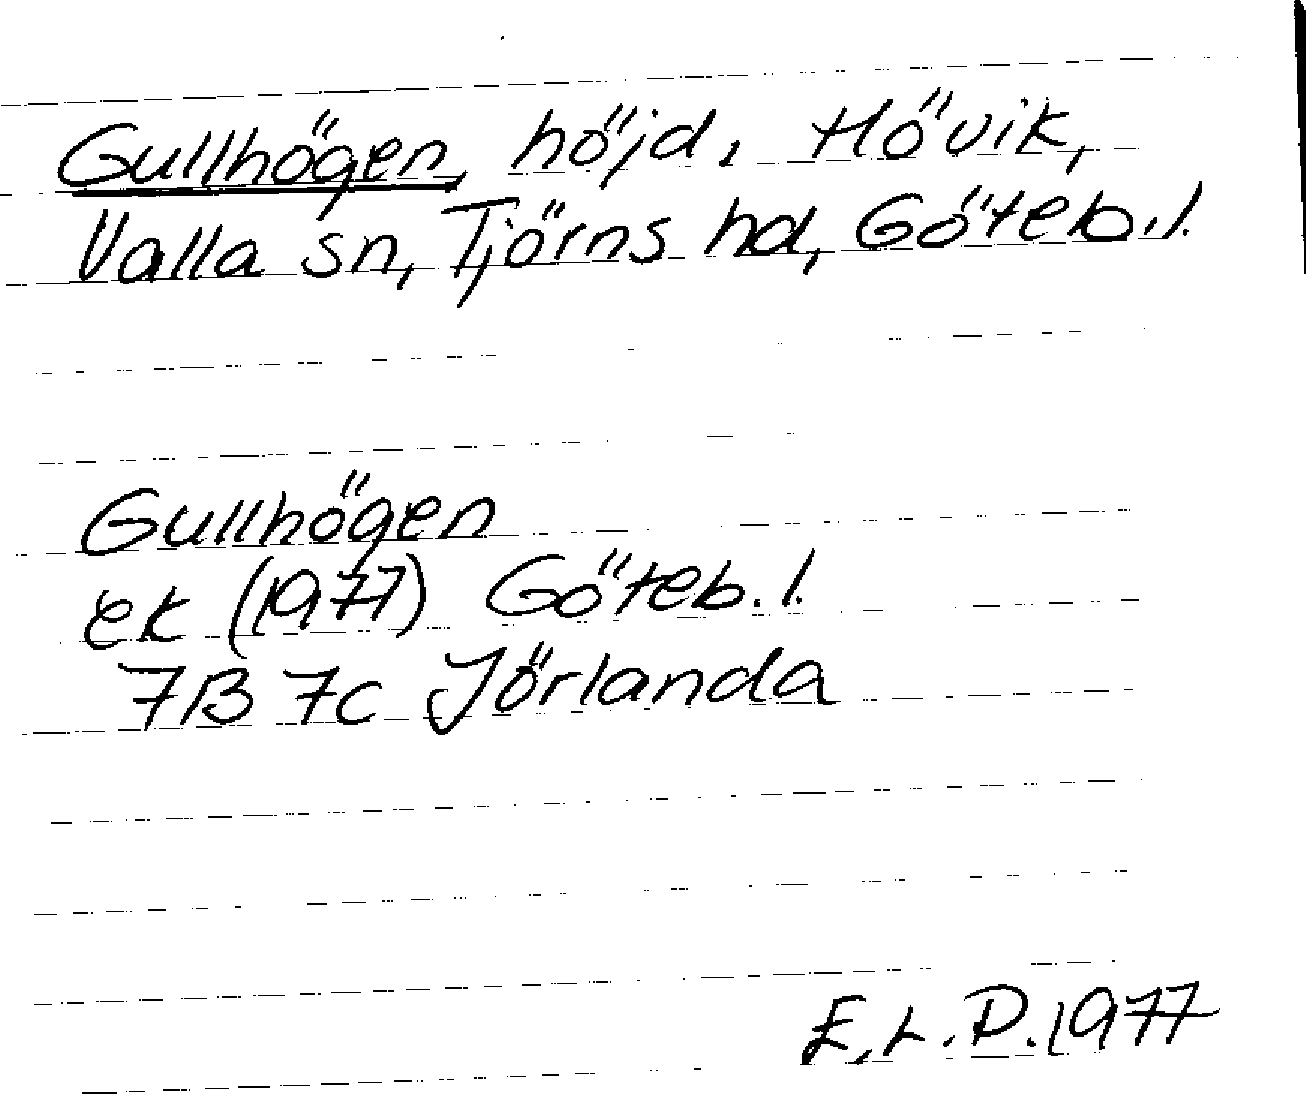 Gullhögen, höjd, Hövik,
Valla sn, Tjörns hd, Göteb.l.
Gullhögen
ek (1977) Göteb.l.
7B 7c Jörlanda
E.L.D.1977